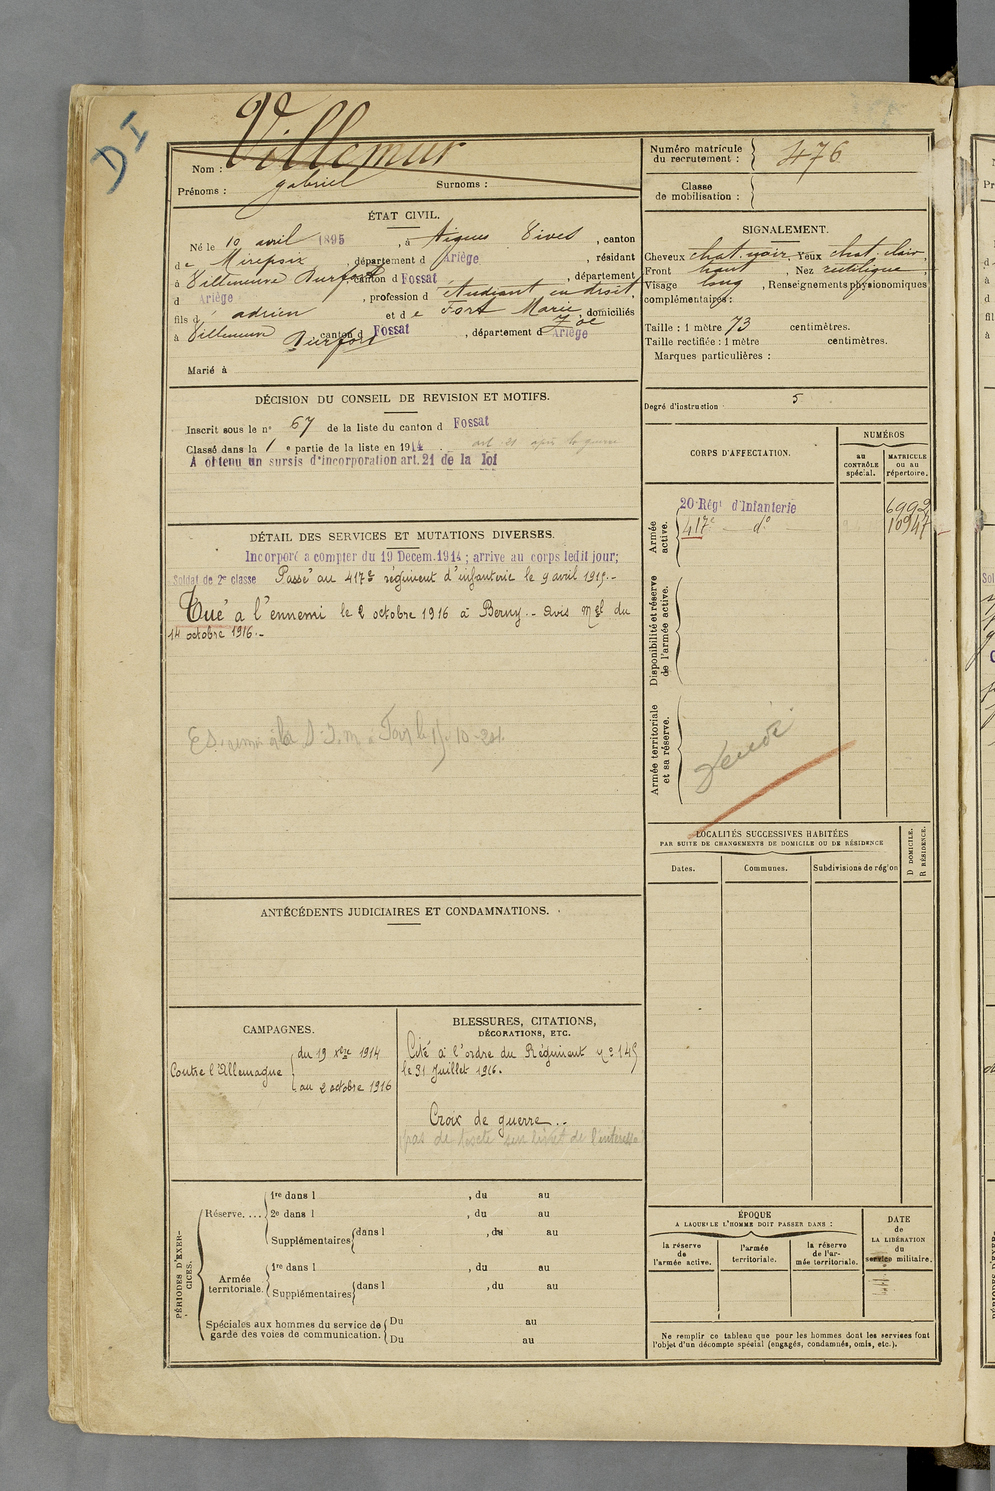 D I
Nom : Villemur
Prénoms : gabriel Surnoms :
Numéro matricule du recrutement : 476
Classe de mobilisation :
ÉTAT CIVIL.
Né le 10 avril 1895, à Aigues Vives, canton
de Mirepoix, département d Ariège, résidant
à Villeneuve Durfort, canton d Fossat, département
d Ariège, profession d étudiant en droit,
fils d' adrien et de Fort Marie Zoé, domiciliés
à Villeneuve Durfort canton d Fossat, département d Ariège
Marié à
SIGNALEMENT.
Cheveux chat. noir Yeux chat. clair,
Front haut, Nez rectiligne
Visage long, Renseignements physionomiques
complémentaires :
Taille : 1 mètre 73 centimètres.
Taille rectifiée : 1 mètre centimètres.
Marques particulières :
DÉCISION DU CONSEIL DE REVISION ET MOTIFS.
Inscrit sous le n° 67 de la liste du canton d Fossat
Classé dans la 1 e partie de la liste en 1914. art. 21 après la guerre
A obtenu un sursis d'incorporation art. 21 de la loi
Degré d'instruction 5
CORPS D'AFFECTATION.
NUMÉROS
au CONTRÔLE spécial.
MATRICULE ou au répertoire.
Armée active.
20 Régt d'Infanterie 6992
417e d° 10947
Disponibilité et réserve de l'armée active.
Armée territoriale et sa réserve.
DÉTAIL DES SERVICES ET MUTATIONS DIVERSES.
Incorporé a compter du 19 Decem. 1914 ; arrive au corps ledit jour;
Soldat de 2e classe Passé au 417e régiment d'infanterie le 9 avril 1915.-
Tué à l'ennemi le 2 octobre 1916 à Berny.- Avis mel du
14 octobre 1916.-
LOCALITÉS SUCCESSIVES HABITÉES
PAR SUITE DE CHANGEMENTS DE DOMICILE OU DE RÉSIDENCE
Dates.
Communes.
Subdivisions de région
D DOMICILE.
R RÉSIDENCE.
ANTÉCÉDENTS JUDICIAIRES ET CONDAMNATIONS.
CAMPAGNES.
Contre l'Allemagne
du 19 xbre 1914
au 2 octobre 1916
BLESSURES, CITATIONS,
DÉCORATIONS, ETC.
Cité à l'ordre du Régiment n° 145
le 31 Juillet 1916.
Croix de guerre..
pas de texte sur livret de l'intéressé
PÉRIODES D'EXERCICES.
Réserve....
1re dans l , du au
2e dans l , du au
Supplémentaires dans l , du au
Armée territoriale.
1re dans l , du au
Supplémentaires dans l , du au
Spéciales aux hommes du service de
garde des voies de communication.
Du au
Du au
ÉPOQUE
A LAQUELLE L'HOMME DOIT PASSER DANS :
la réserve de l'armée active.
l'armée territoriale.
la réserve de l'armée territoriale.
DATE de LA LIBÉRATION du service militaire.
Ne remplir ce tableau que pour les hommes dont les services font
l'objet d'un décompte spécial (engagés, condamnés, omis, etc.).